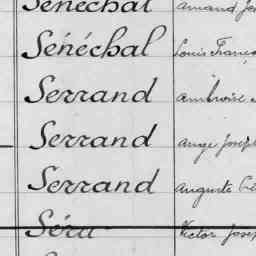 Sénéchal Armand
Sénéchal Louis
Serrand Ambroise
Serrand Ange Joseph
Serrand Auguste
Séru Victor